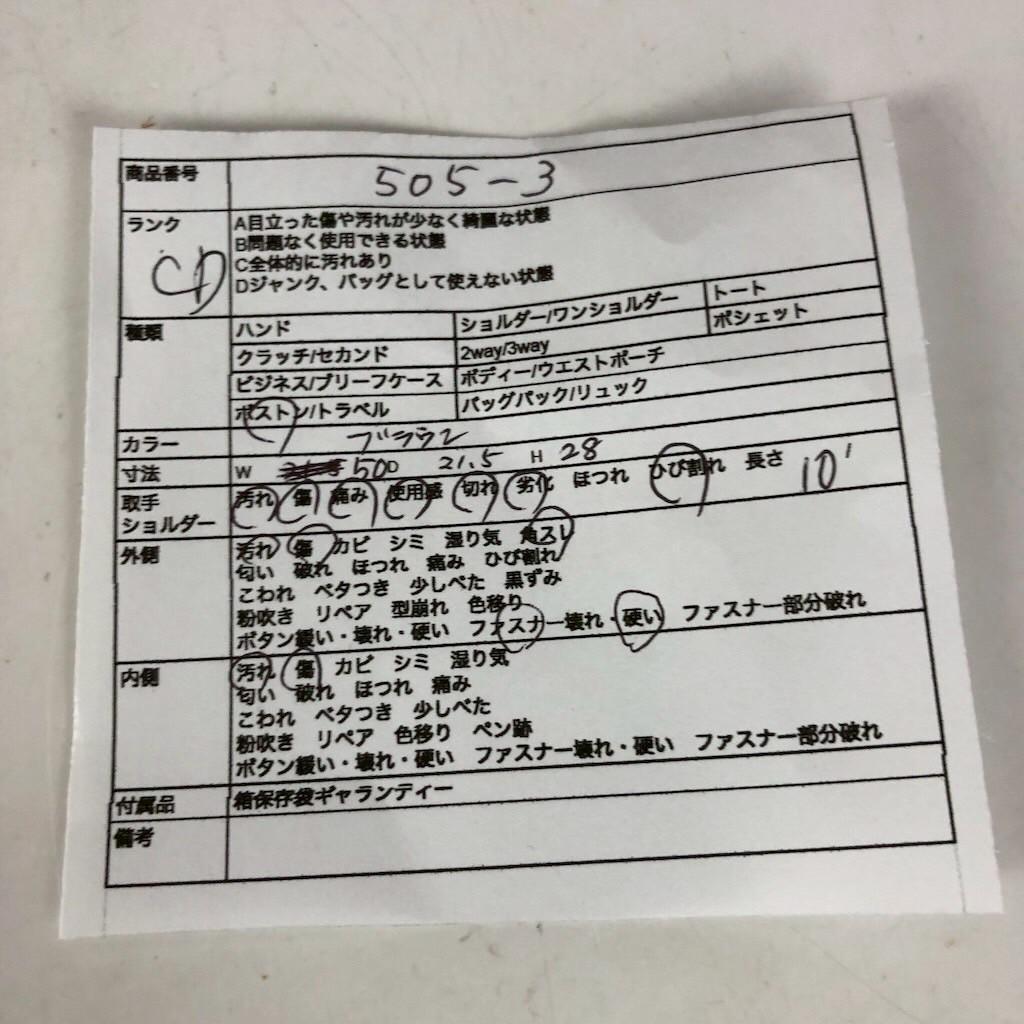 商品番号 505-3
ランク CD
A目立った傷や汚れが少なく綺麗な状態
B問題なく使用できる状態
C全体的に汚れあり
Dジャンク、バッグとして使えない状態
種類 ハンド ショルダー/ワンショルダー トート
クラッチ/セカンド 2way/3way ポシェット
ビジネス/ブリーフケース ボディー/ウエストポーチ
ボストン/トラベル バッグパック/リュック
カラー ブラウン
寸法 W 50D 21.5 H 28
取手 汚れ 傷 痛み 使用感 切れ 劣化 ほつれ ひび割れ 長さ 10
ショルダー
外側 汚れ 傷 カビ シミ 湿り気 角スレ
匂い 破れ ほつれ 痛み ひび割れ
こわれ ベタつき 少しべた 黒ずみ
粉吹き リペア 型崩れ 色移り
ボタン緩い・壊れ・硬い ファスナー壊れ・硬い ファスナー部分破れ
内側 汚れ 傷 カビ シミ 湿り気
匂い 破れ ほつれ 痛み
こわれ ベタつき 少しべた
粉吹き リペア 色移り ペン跡
ボタン緩い・壊れ・硬い ファスナー壊れ・硬い ファスナー部分破れ
付属品 箱保存袋ギャランティー
備考